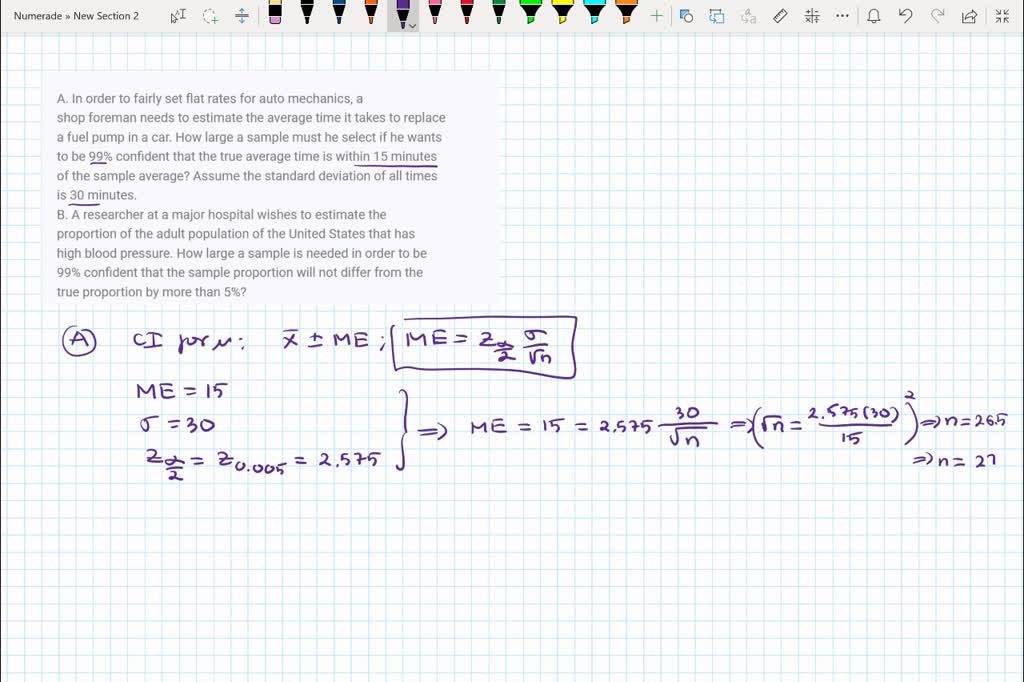 Numerade » New Section 2
A. In order to fairly set flat rates for auto mechanics, a
shop foreman needs to estimate the average time it takes to replace
a fuel pump in a car. How large a sample must he select if he wants
to be 99% confident that the true average time is within 15 minutes
of the sample average? Assume the standard deviation of all times
is 30 minutes.
B. A researcher at a major hospital wishes to estimate the
proportion of the adult population of the United States that has
high blood pressure. How large a sample is needed in order to be
99% confident that the sample proportion will not differ from the
true proportion by more than 5%?
A CI form: x̄ ± ME ; ME = z_{α/2} σ/√n
ME = 15
σ = 30
z_{α/2} = z_{0.005} = 2.575
⇒ ME = 15 = 2.575 30/√n ⇒ (√n = 2.575(30)/15)² ⇒ n = 26.5
⇒ n = 27